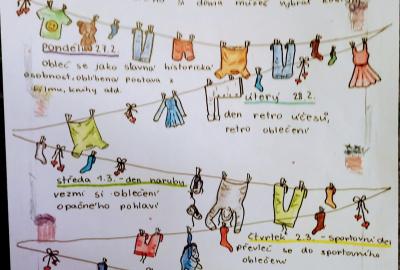 si doma můžeš vybrat
Pondělí 27.2.
obleč se jako slavná historická
osobnost, oblíbená postava z
filmu, knihy atd.
úterý 28.2.
den retro účesů,
retro oblečení
středa 1.3. - den naruby
vezmi si oblečení
opačného pohlaví
čtvrtek 2.3. - sportovní den
převleč se do sportovního
oblečení